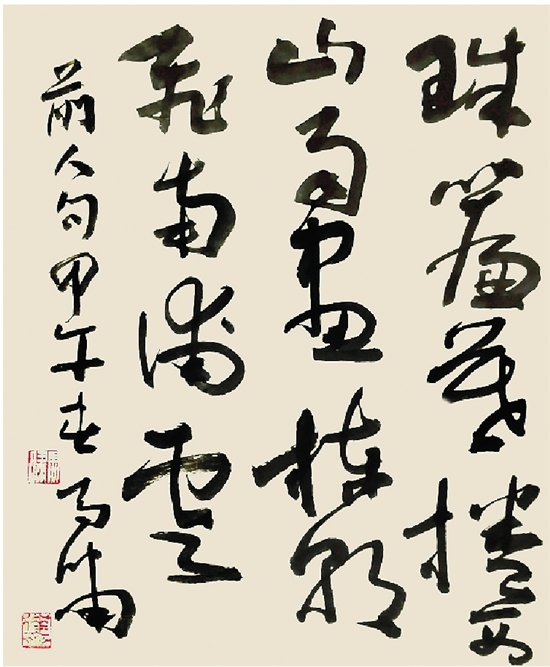 珠簾暮捲西
山雨畫棟朝
飛南浦雲
前人句甲午春